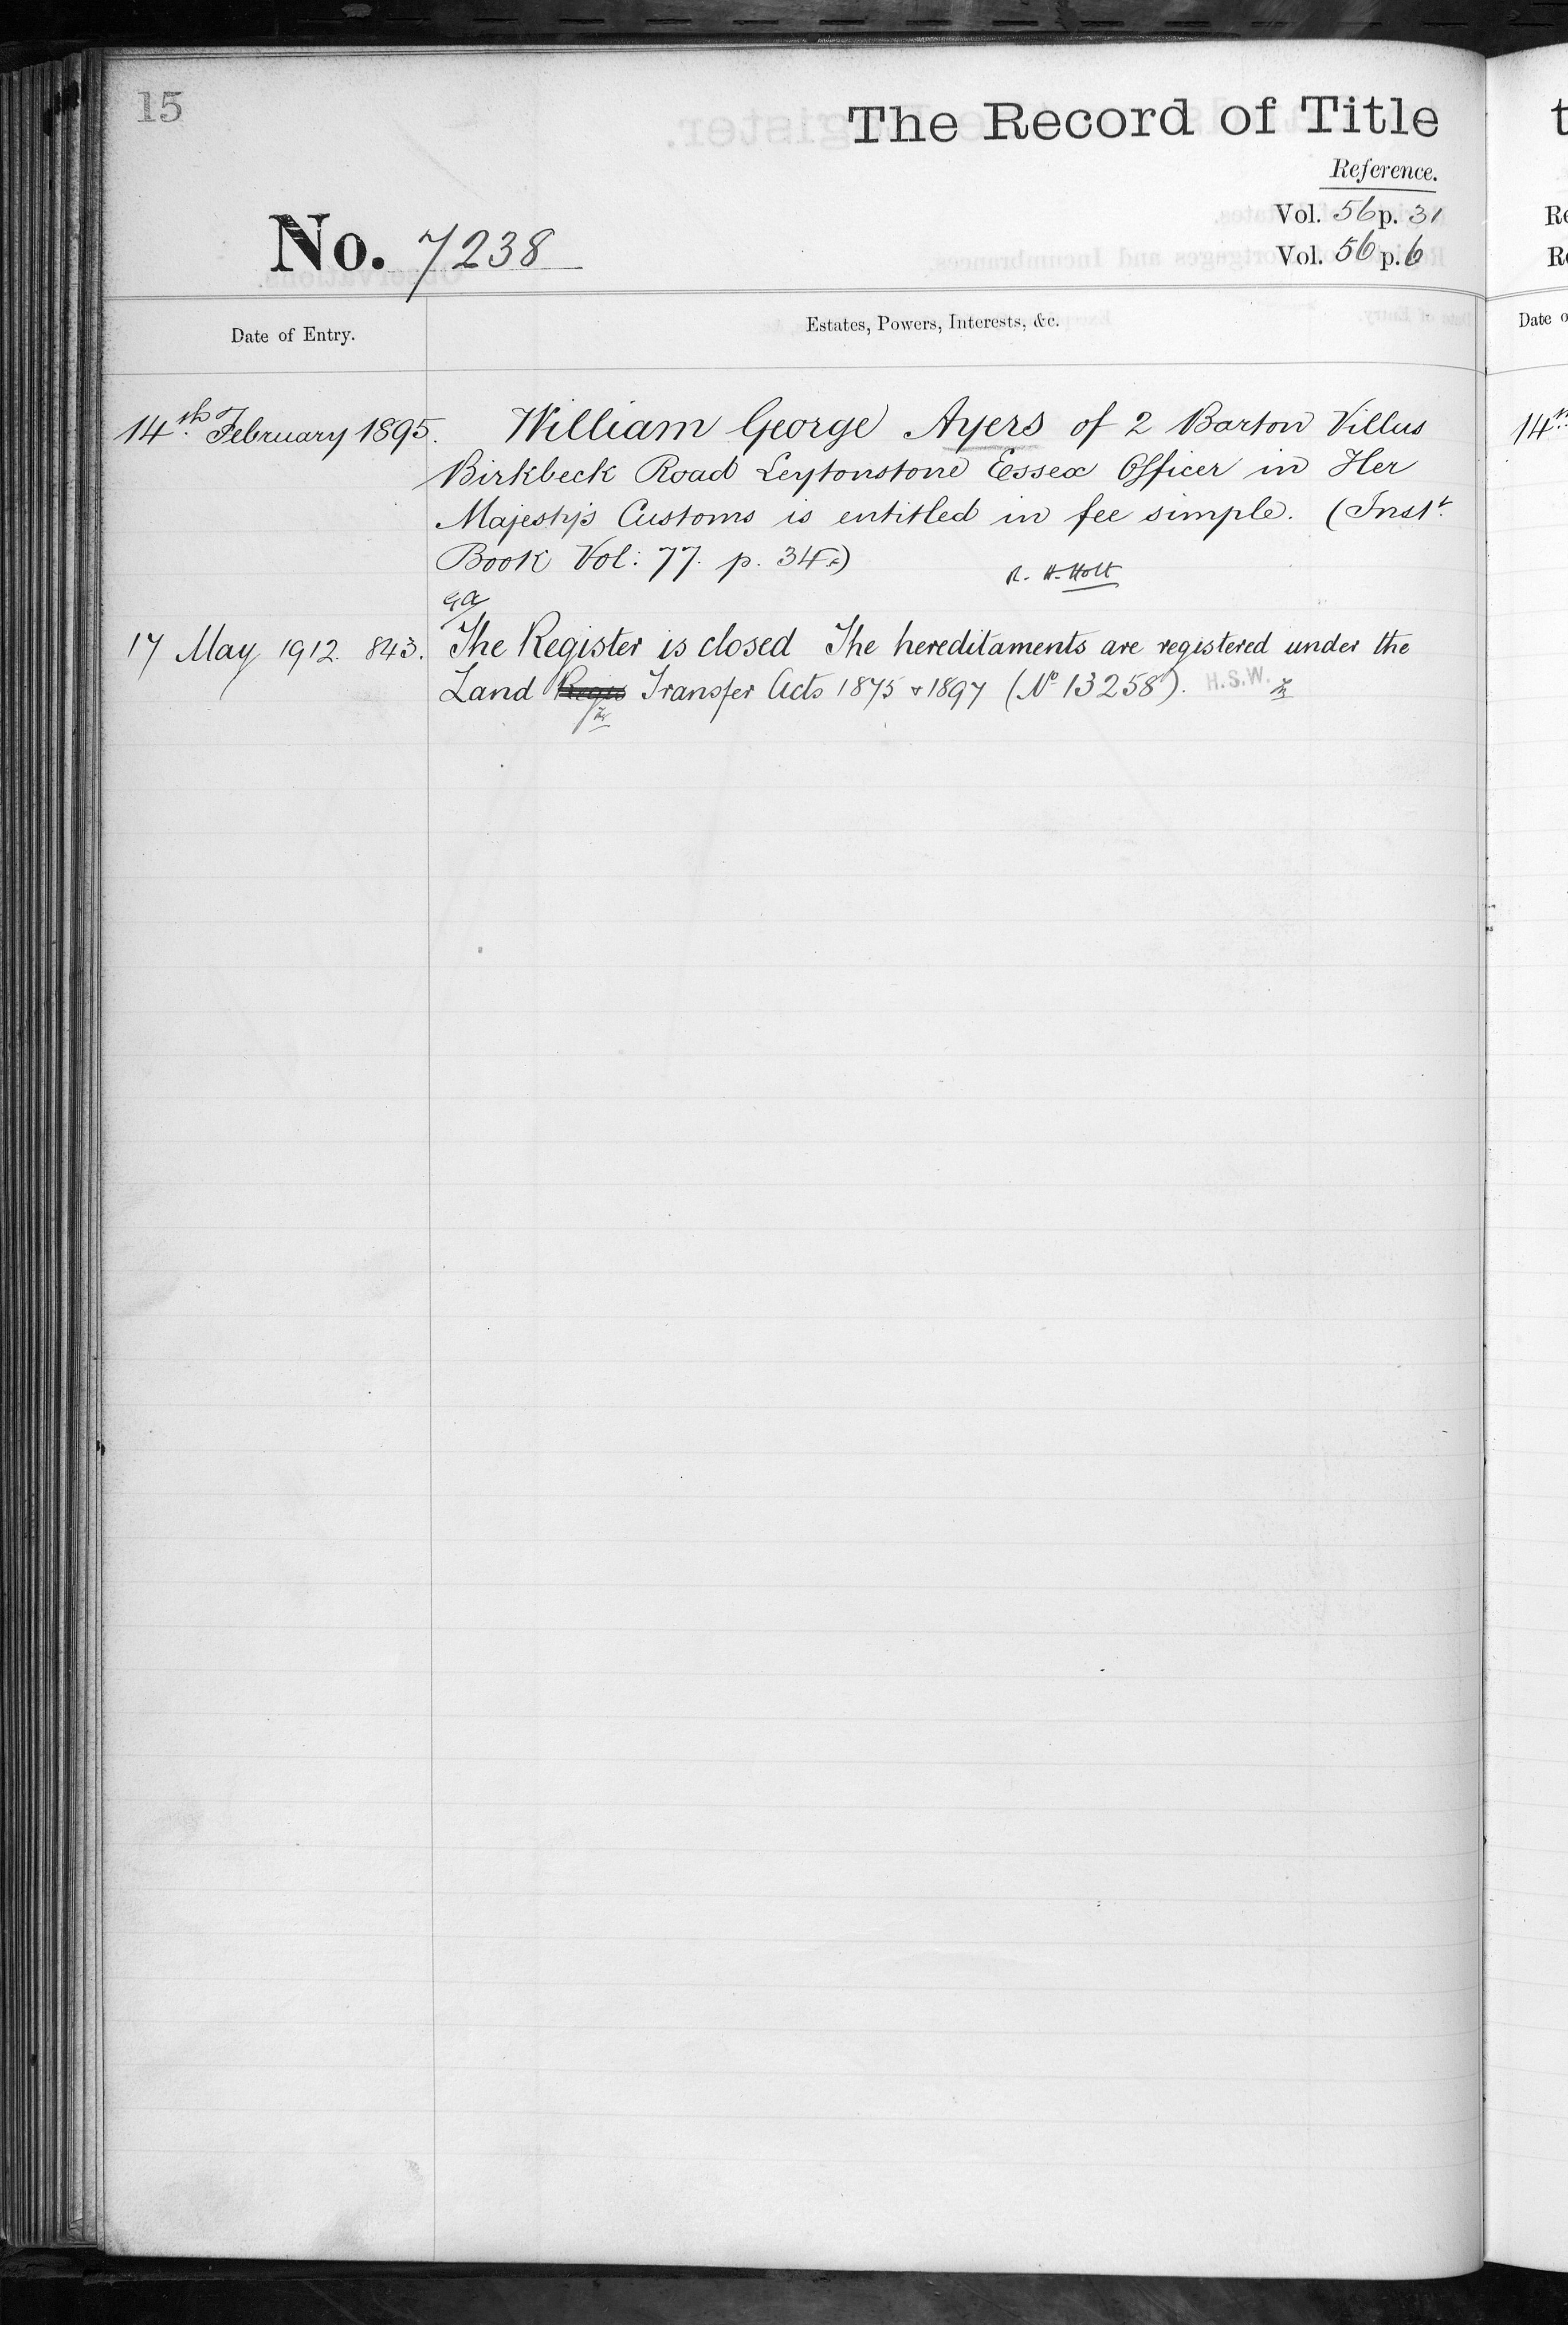 15
The Record of Title
Reference.
Vol. 56 p. 31
No. 7238
Vol. 56 p. 6
Date of Entry.
Estates, Powers, Interests, &c.
14th February 1895. William George Ayers of 2 Barton Villas
Birkbeck Road Leytonstone Essex Officer in Her
Majesty's Customs is entitled in fee simple. (Instt.
Book Vol: 77. p. 34.)
R. H. Holt
17 May 1912. 843. The Register is closed The hereditaments are registered under the
Land Regis Transfer Acts 1875 & 1897 (No 13258). H.S.W.
t
Re
Re
Date o
14th